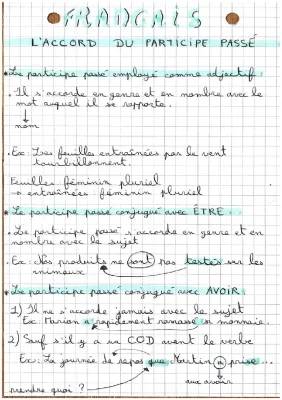 FRANCAIS
L'ACCORD DU PARTICIPE PASSÉ
• Le participe passé employé comme adjectif :
• Il s'accorde en genre et en nombre avec le
mot auquel il se rapporte.
nom
• Ex : Les feuilles entraînées par le vent
tourbillonnent.
Feuilles féminin pluriel
→ entraînées féminin pluriel
• Le participe passé conjugué avec ÊTRE :
• Le participe passé s'accorde en genre et en
nombre avec le sujet
• Ex : Nos produits ne sont pas testés sur les
animaux
• Le participe passé conjugué avec AVOIR :
1) Il ne s'accorde jamais avec le sujet
Ex : a rapidement ramassé sa monnaie.
2) Sauf s'il y a un COD avant le verbe
Ex : La journée de repos que Martin a prise...
prendre quoi ?
aux avoir